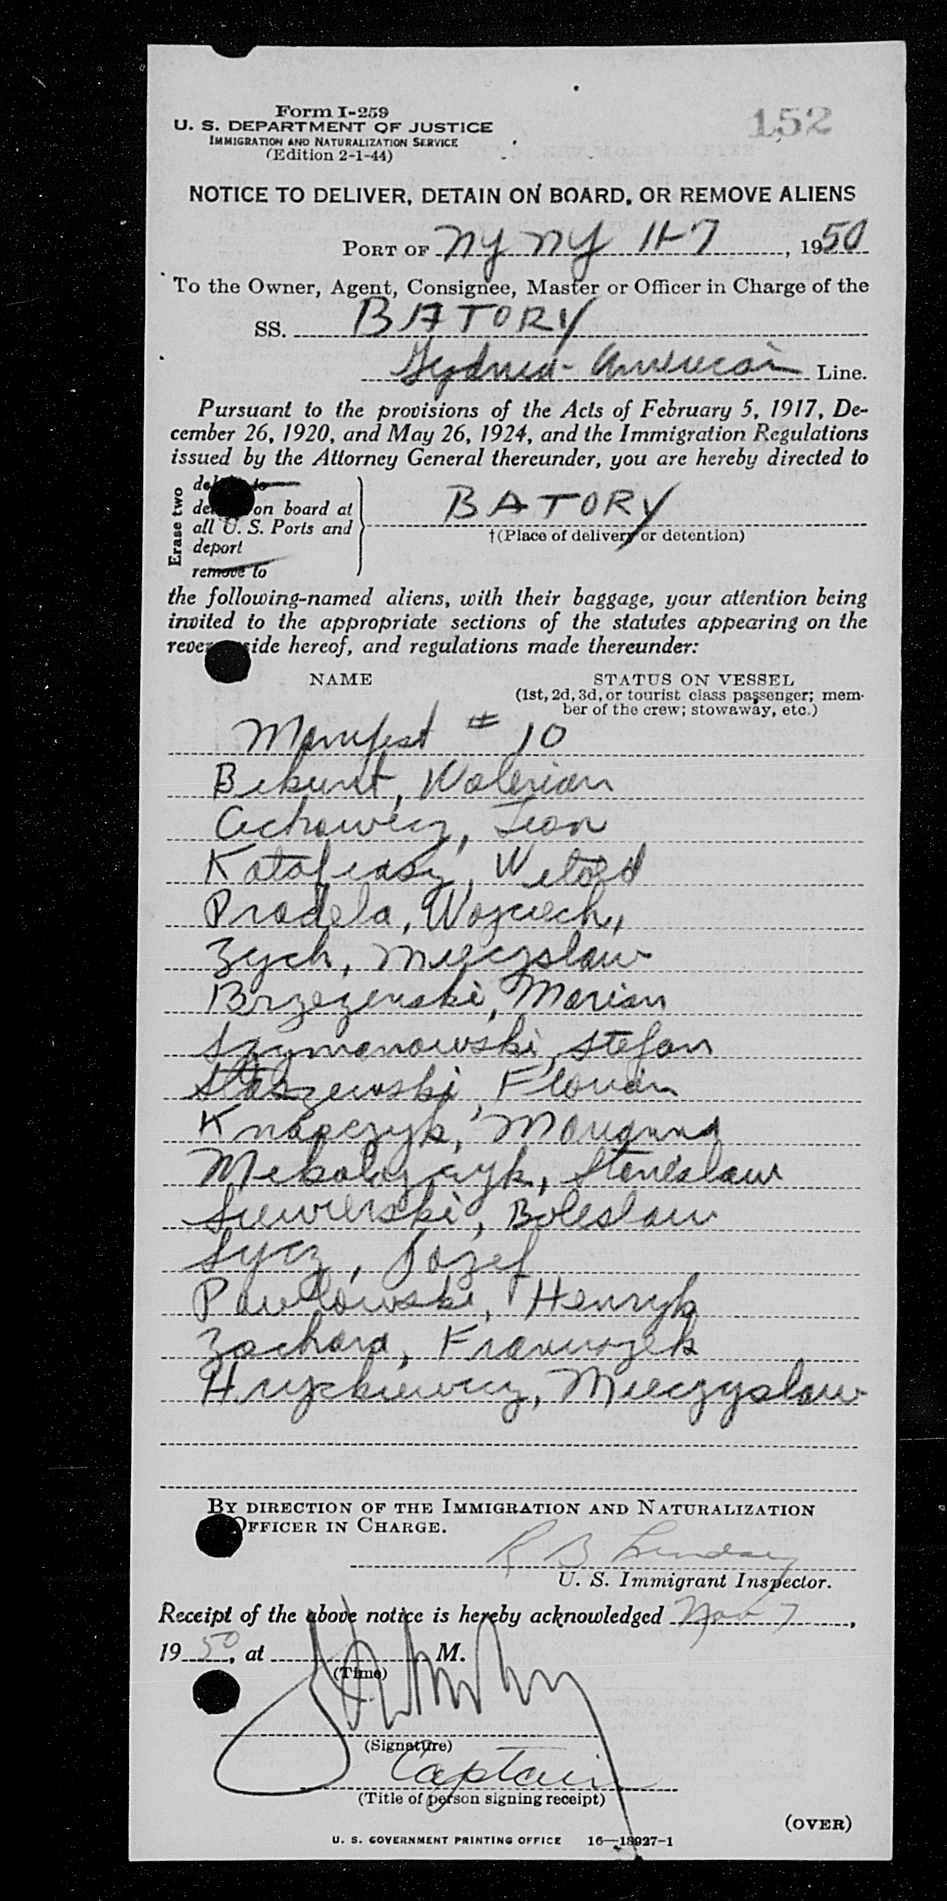 Form I-259
152
U. S. DEPARTMENT OF JUSTICE
IMMIGRATION AND NATURALIZATION SERVICE
(Edition 2-1-44)
NOTICE TO DELIVER, DETAIN ON BOARD, OR REMOVE ALIENS
PORT OF NY NY 11-7, 1950
To the Owner, Agent, Consignee, Master or Officer in Charge of the
SS. BATORY
Gydnia-American Line.
Pursuant to the provisions of the Acts of February 5, 1917, De-
cember 26, 1920, and May 26, 1924, and the Immigration Regulations
issued by the Attorney General thereunder, you are hereby directed to
Erase two
deliver to
detain on board at
all U. S. Ports and
deport
remove to
BATORY
†(Place of delivery or detention)
the following-named aliens, with their baggage, your attention being
invited to the appropriate sections of the statutes appearing on the
reverse side hereof, and regulations made thereunder:
NAME
STATUS ON VESSEL
(1st, 2d, 3d, or tourist class passenger; mem-
ber of the crew; stowaway, etc.)
Manifest # 10
Bikunt, Walerian
Cichowicz, Leon
Witold
Pradela, Wojciech,
Zych, Mieczyslaw
Brzezenski, Marian
Szymanowski, Stefan
Staszewski, Florian
Knapczyk, Marianna
Mikolajczyk, Stanislaw
Siewierski, Boleslaw
Sycz, Jozef
Pawlowski, Henryk
Zachara, Franciszek
Hryckiewicz, Mieczyslaw
BY DIRECTION OF THE IMMIGRATION AND NATURALIZATION
OFFICER IN CHARGE.
R B Lindsay
U. S. Immigrant Inspector.
Receipt of the above notice is hereby acknowledged Nov 7,
1950, at M.
(Time)
(Signature)
Captain
(Title of person signing receipt)
(OVER)
U. S. GOVERNMENT PRINTING OFFICE 16—18927-1